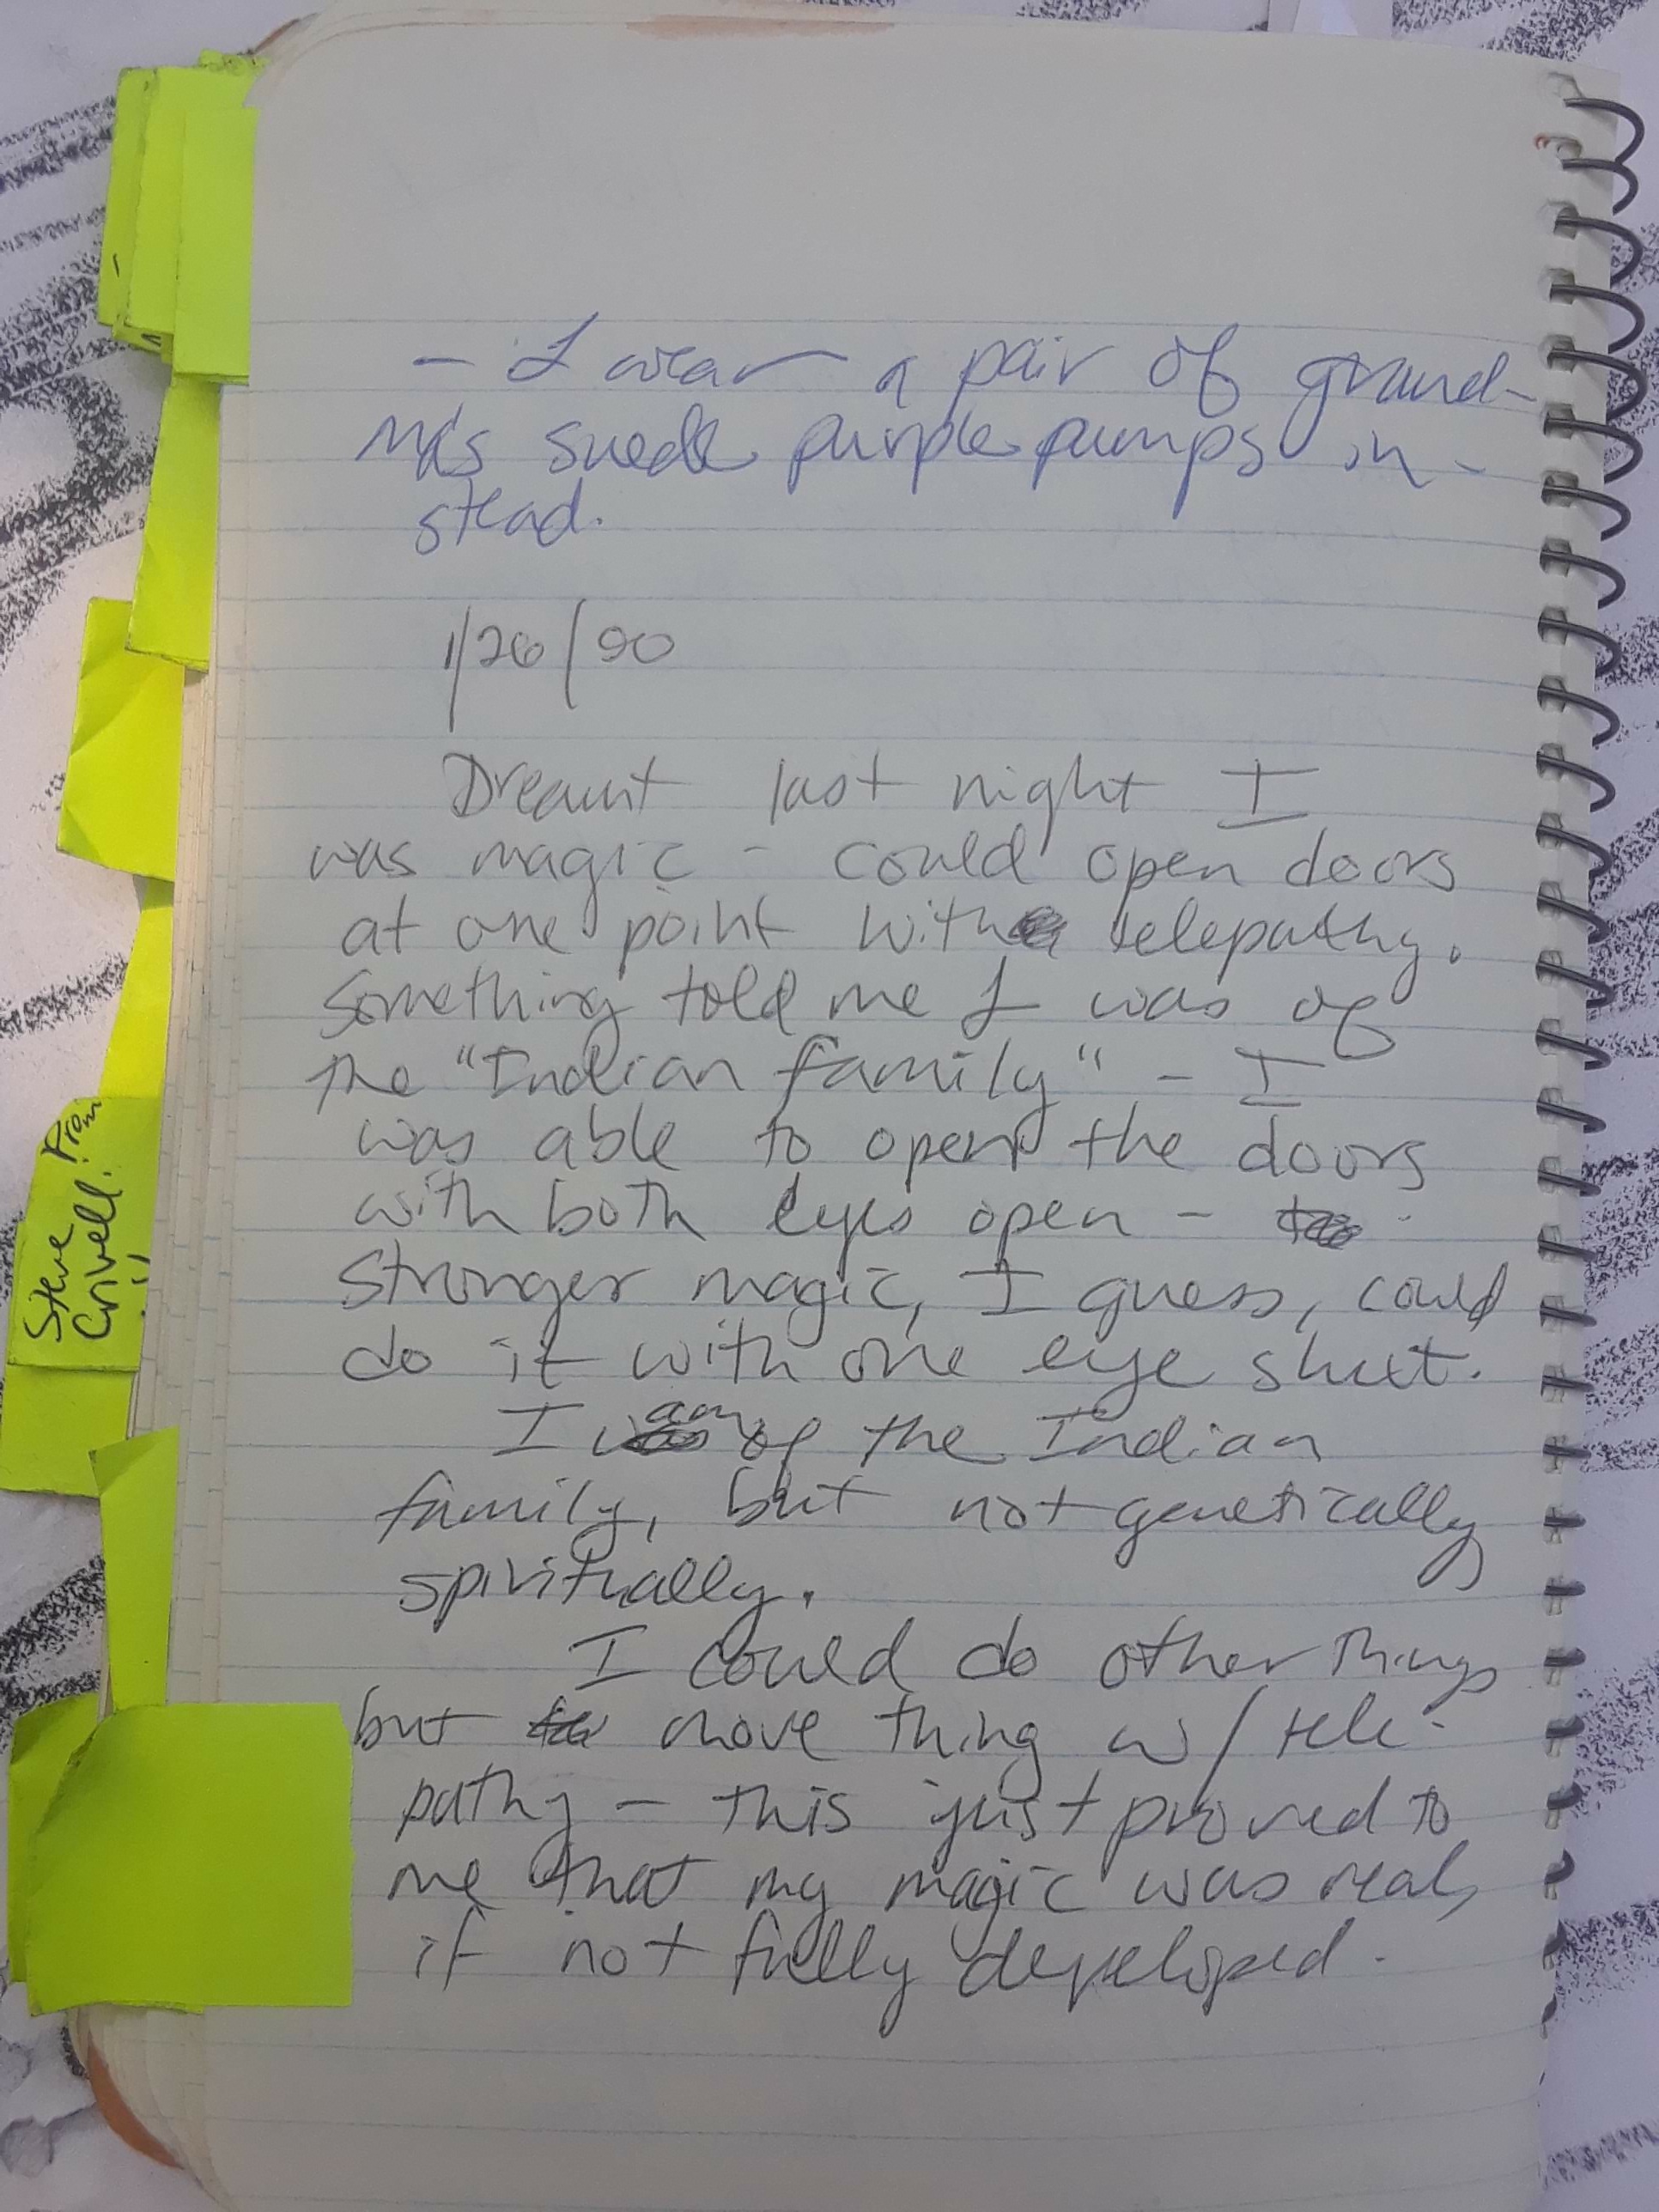 - I wear a pair of grand-
ma's suede purple pumps in-
stead.
1/26/90
Dreamt last night I
was magic - could open doors
at one point with telepathy.
Something told me I was of
the "Indian family" - I
was able to open the doors
with both eyes open -
stronger magic, I guess, could
do it with one eye shut.
I am of the Indian
family, but not genetically
spiritually.
I could do other things
but move thing w/ tele-
pathy - this just proved to
me that my magic was real,
if not fully developed.
Steve
Crivell
Prom